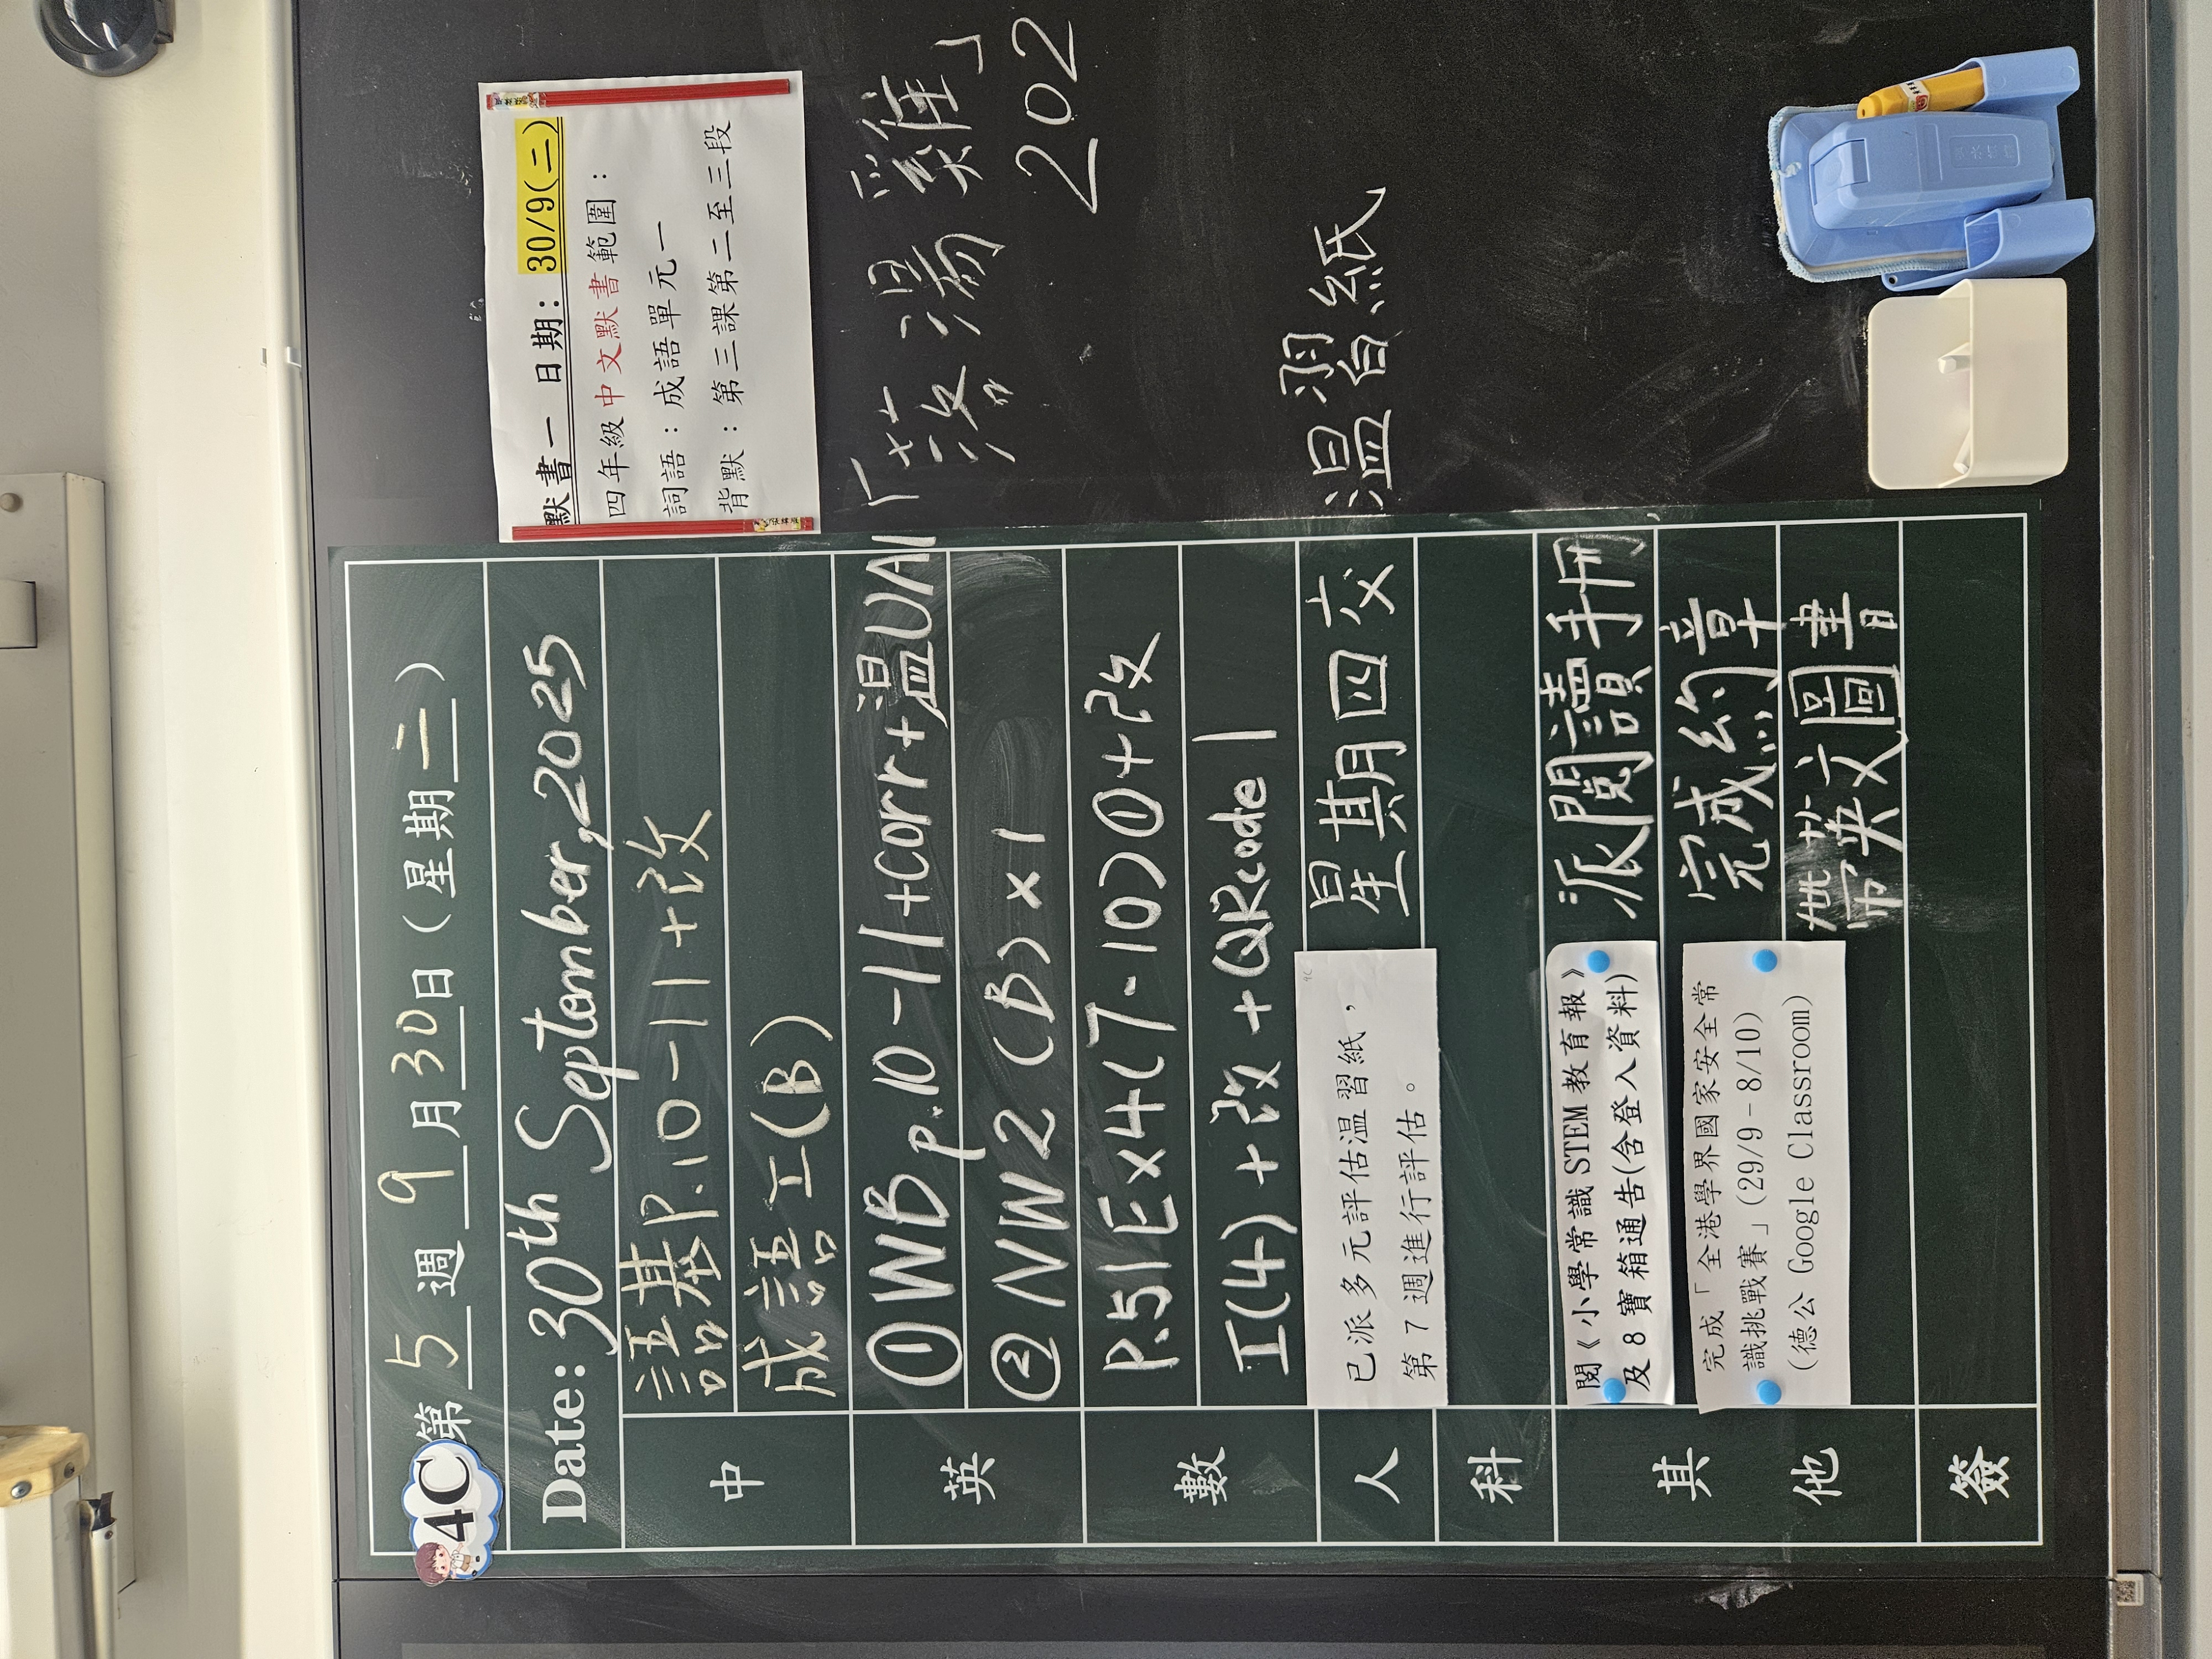 4C 第 5 週 9 月 30 日 (星期 二 )
Date: 30th September, 2025
中
語基P.10-11+改
成語工(B)
英
①WB p.10-11+corr+温UA1
②NW2 (B) x 1
數
P.51Ex4(7-10)①+改
工(4)+改+QRcode 1
人
已派多元評估温習紙，
第 7 週進行評估。
4C
星期四交
科
其他
閱《小學常識 STEM 教育報》
及 8 寶箱通告(含登入資料)
派閱讀手冊
完成「全港學界國家安全常
識挑戰賽」(29/9-8/10)
(德公 Google Classroom)
完成約章
帶英文圖書
簽
默書一 日期: 30/9(二)
四年級中文默書範圍：
詞語：成語單元一
背默：第三課第二至三段
「落湯雞」
202
温習紙